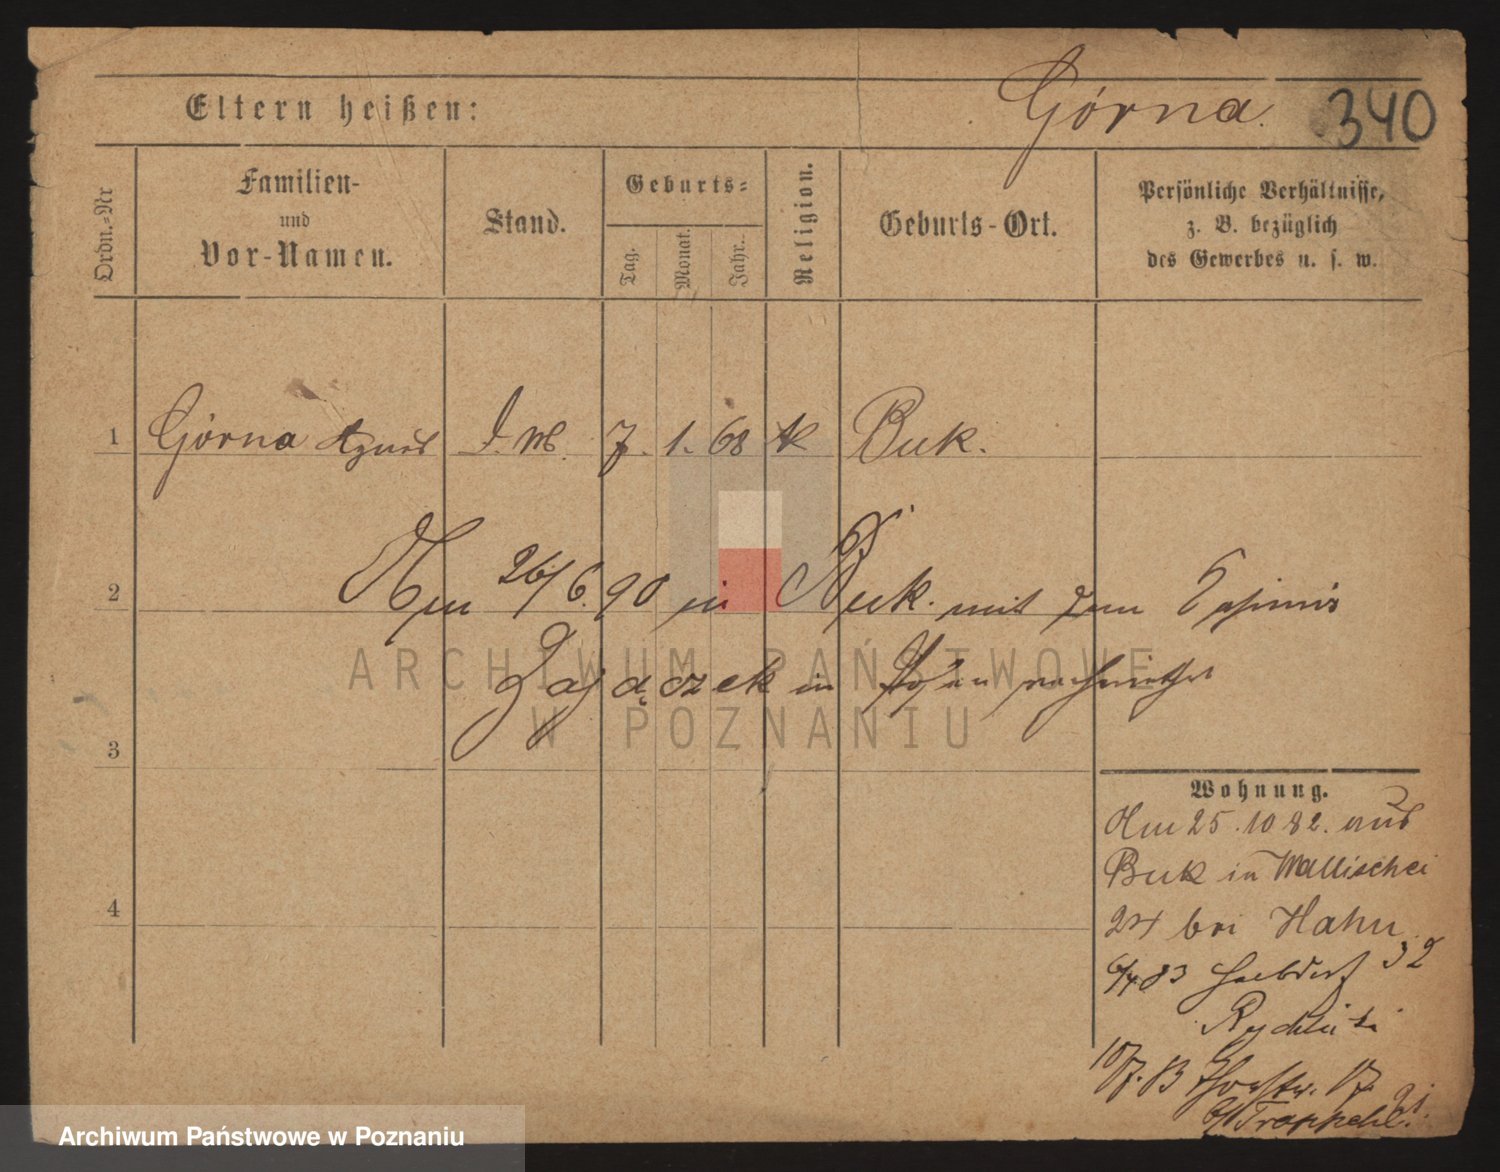 Eltern heißen:
Górna.
340
Ordn.-Nr
Familien-
und
Vor-Namen.
Stand.
Geburts-
Tag.
Monat.
Jahr.
Religion.
Geburts-Ort.
Persönliche Verhältnisse,
z. B. bezüglich
des Gewerbes u. s. w.
1 Górna Agnes D. M. 7. 1. 68 k Buk.
2 Am 26/6. 90 in Buk. mit dem Casimir
Zajączek in Posen verheirathet
3
4
Wohnung.
Am 25.10 82. aus
Buk in Wallischei
bei Hahn
6/4 83 Halbdorf 32
Rychlicki
10/7. 83 17.
ARCHIWUM PAŃSTWOWE
W POZNANIU
Archiwum Państwowe w Poznaniu